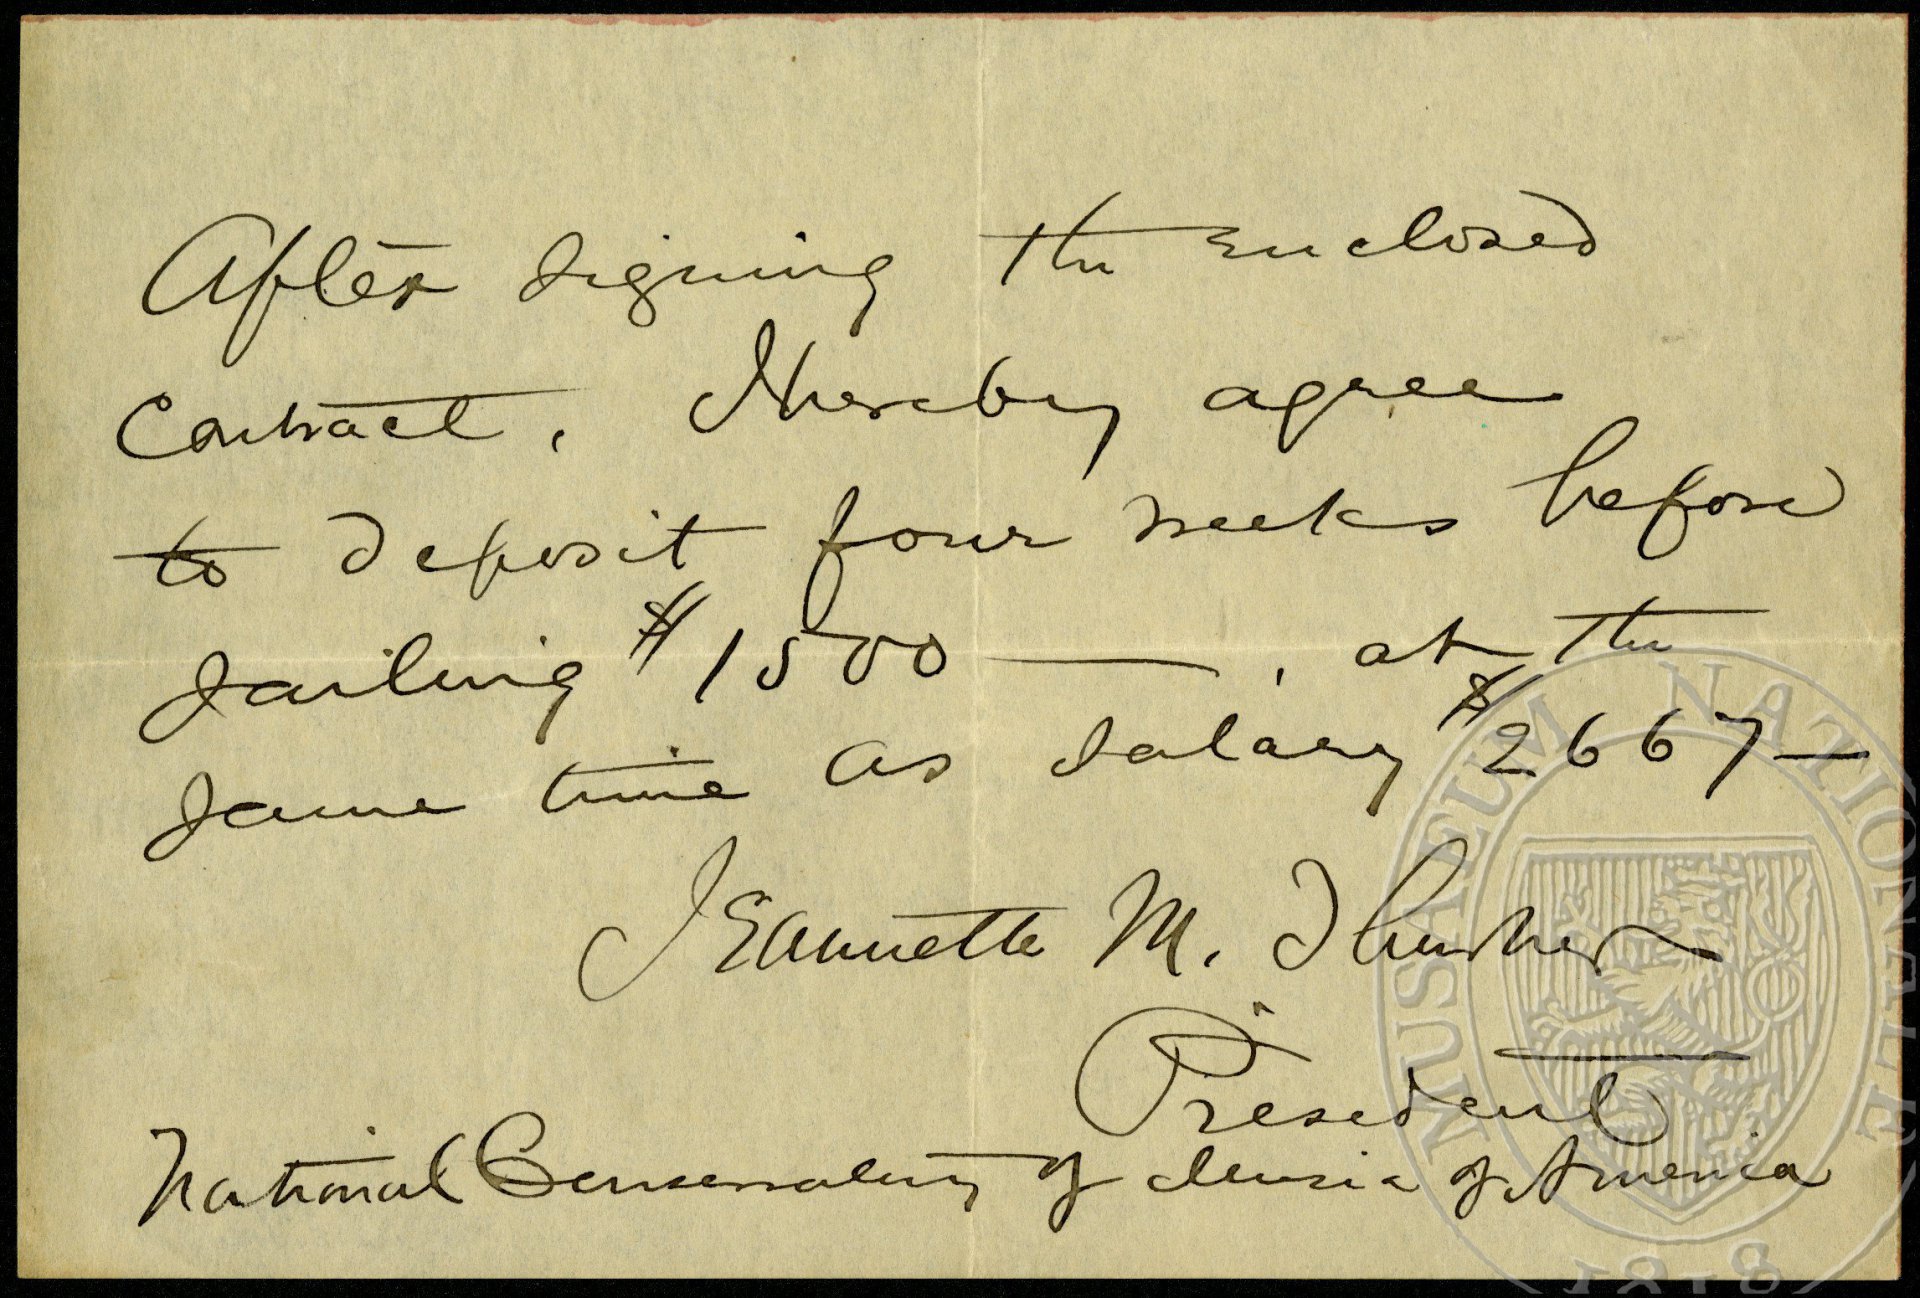 After signing the enclosed
contract, I hereby agree
to deposit four weeks before
sailing $1500 — , at the
same time as salary $2667 —
Jeannette M. Thurber
President
National Conservatory of Music of America
MUSAEUM NATIONALE
1818